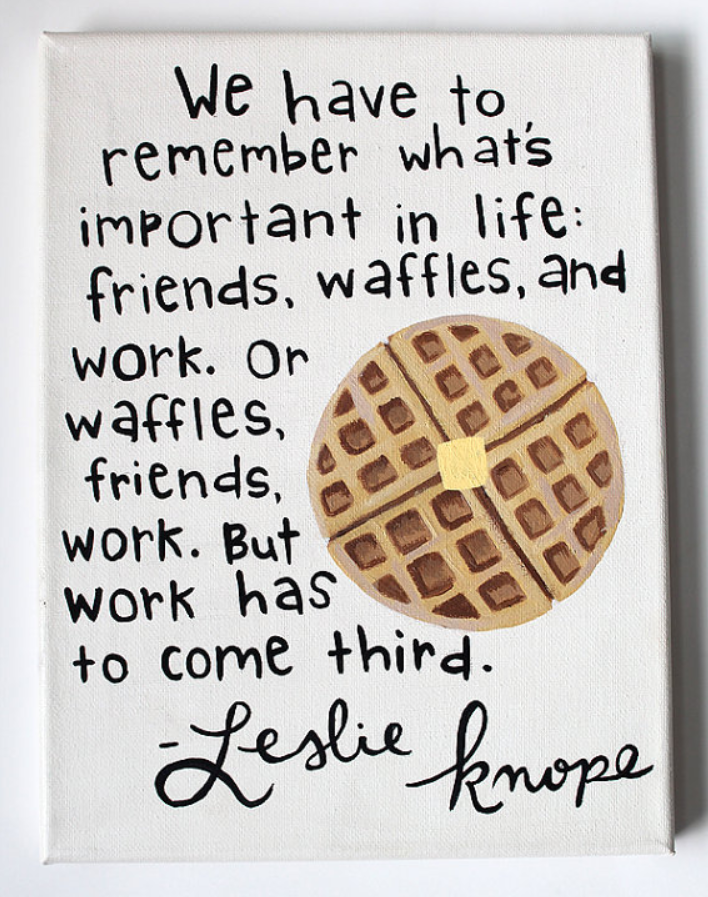 We have to
remember what's
important in life:
friends, waffles, and
work. Or
waffles,
friends,
work. But
work has
to come third.
-Leslie Knope